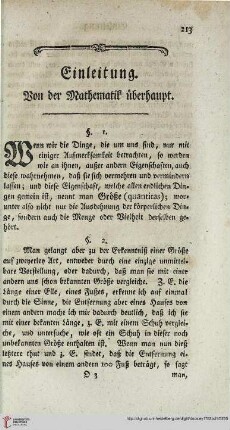 213
Einleitung.
Von der Mathematik überhaupt.
§. 1.
Wenn wir die Dinge, die um uns sind, nur mit
einiger Aufmerksamkeit betrachten, so werden
wir an ihnen, außer andern Eigenschaften, auch
diese wahrnehmen, daß sie sich vermehren und vermindern
lassen; und diese Eigenschaft, welche allen endlichen Din-
gen gemein ist, nennt man Größe (quantitas); wor-
unter also nicht nur die Ausdehnung der körperlichen Din-
ge, sondern auch die Menge oder Vielheit derselben ge-
hört.
§. 2.
Man gelangt aber zu der Erkenntniß einer Größe
auf zweyerley Art, entweder durch eine einzige unmittel-
bare Vorstellung, oder dadurch, daß man sie mit einer
andern uns schon bekannten Größe vergleicht. Z. E. die
Länge einer Elle, eines Fußes, erkenne ich auf einmal
durch die Sinne, die Entfernung aber eines Hauses von
einem andern mache ich mir dadurch deutlich, daß ich sie
mit einer bekannten Länge, z. E. mit einem Schuh verglei-
che, und untersuche, wie oft ein Schuh in dieser noch
unbekannten Größe enthalten ist. Wenn man nun dieß
letztere thut und z. E. findet, daß die Entfernung ei-
nes Hauses von einem andern 100 Fuß beträgt, so sagt
O 3 man,